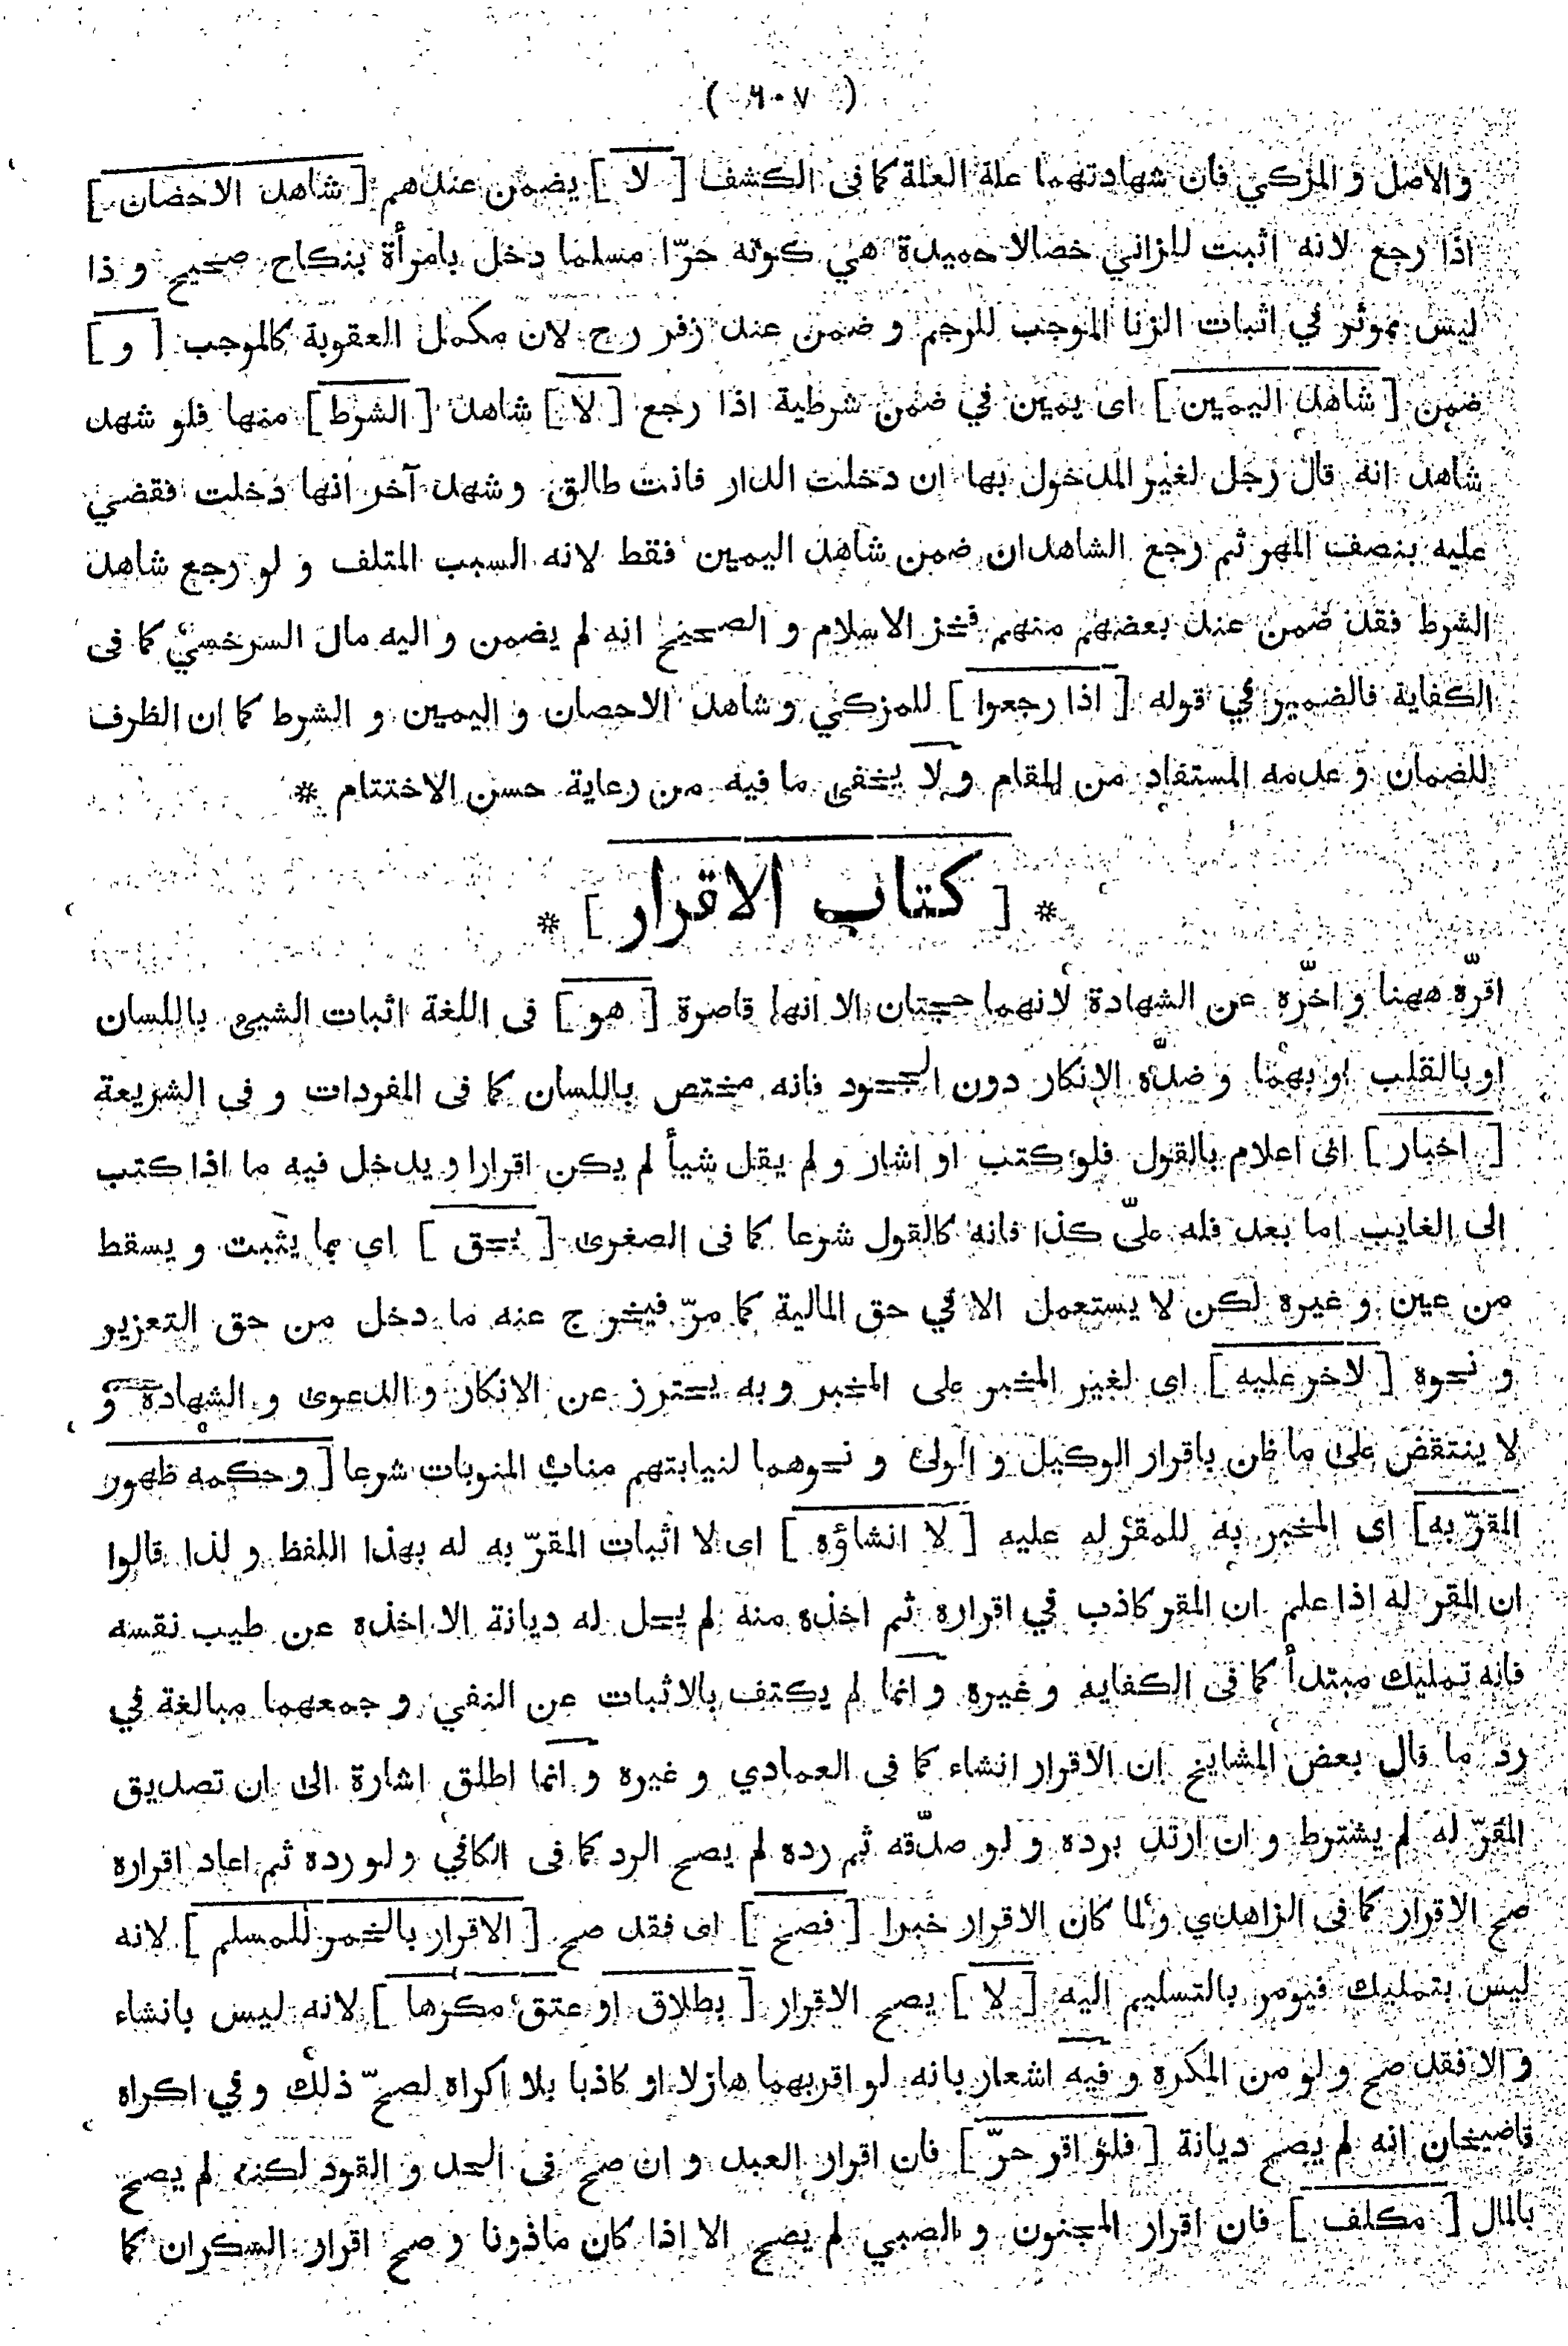 ( ٦٠٧ )
والاصل و المزكي فان شهادتهما علة العلة كما فى الكشف [ لا ] يضمن عندهم [ شاهد الاحصان ]
اذا رجع لانه اثبت للزاني خصالا حميدة هي كونه حرّا مسلما دخل بامرأة بنكاح صحيح و ذا
ليس بموثر في اثبات الزنا الموجب للرجم و ضمن عند زفر رح لان مكمل العقوبة كالموجب [ و ]
ضمن [ شاهد اليمين ] اى يمين في ضمن شرطية اذا رجع [ لا ] شاهد [ الشرط ] منها فلو شهد
شاهد انه قال رجل لغير المدخول بها ان دخلت الدار فانت طالق و شهد آخر انها دخلت فقضي
عليه بنصف المهر ثم رجع الشاهدان ضمن شاهد اليمين فقط لانه السبب المتلف و لو رجع شاهد
الشرط فقد ضمن عند بعضهم منهم فخر الاسلام و الصحيح انه لم يضمن و اليه مال السرخسي كما فى
الكفاية فالضمير في قوله [ اذا رجعوا ] للمزكي و شاهد الاحصان و اليمين و الشرط كما ان الظرف
للضمان و عدمه المستفاد من المقام و لا يخفى ما فيه من رعاية حسن الاختتام *
* [ كتاب الاقرار ] *
اقرّه ههنا و اخّره عن الشهادة لانهما حجتان الا انها قاصرة [ هو ] فى اللغة اثبات الشيئ باللسان
او بالقلب او بهما و ضدّه الانكار دون الجحود فانه مختص باللسان كما فى المفردات و فى الشريعة
[ اخبار ] اى اعلام بالقول فلو كتب او اشار و لم يقل شيأ لم يكن اقرارا و يدخل فيه ما اذا كتب
الى الغايب اما بعد فله علىّ كذا فانه كالقول شرعا كما فى الصغرى [ بحق ] اي بما يثبت و يسقط
من عين و غيره لكن لا يستعمل الا في حق المالية كما مرّ فيخرج عنه ما دخل من حق التعزير
و نحوه [ لاخر عليه ] اى لغير المخبر على المخبر و به يحترز عن الانكار و الدعوى و الشهادة و
لا ينتقض على ما ظن باقرار الوكيل و الولى و نحوهما لنيابتهم مناب المنوبات شرعا [ و حكمه ظهور
المقرّ به] اى المخبر به للمقر له عليه [ لا انشاؤه ] اى لا اثبات المقرّ به له بهذا اللفظ و لذا قالوا
ان المقر له اذا علم ان المقر كاذب في اقراره ثم اخذه منه لم يحل له ديانة الا اخذه عن طيب نفسه
فانه تمليك مبتدأ كما فى الكفايه و غيره و انما لم يكتف بالاثبات عن النفي و جمعهما مبالغة في
رد ما قال بعض المشايخ ان الاقرار انشاء كما فى العمادي و غيره و انما اطلق اشارة الى ان تصديق
المقرّ له لم يشترط و ان ارتد برده و لو صدّقه ثم رده لم يصح الرد كما فى الكافي و لو رده ثم اعاد اقراره
صح الاقرار كما فى الزاهدي و لما كان الاقرار خبرا [ فصح ] اى فقد صح [ الاقرار بالخمر للمسلم ] لانه
ليس بتمليك فيومر بالتسليم اليه [ لا ] يصح الاقرار [ بطلاق او عتق مكرها ] لانه ليس بانشاء
و الا فقد صح و لو من المكره و فيه اشعار بانه لو اقر بهما هازلا او كاذبا بلا اكراه لصحّ ذلك و في اكراه
قاضيخان انه لم يصح ديانة [ فلو اقر حرّ ] فان اقرار العبد و ان صح فى الحد و القود لكنه لم يصح
بالمال [ مكلف ] فان اقرار المجنون و الصبي لم يصح الا اذا كان ماذونا و صح اقرار السكران كما